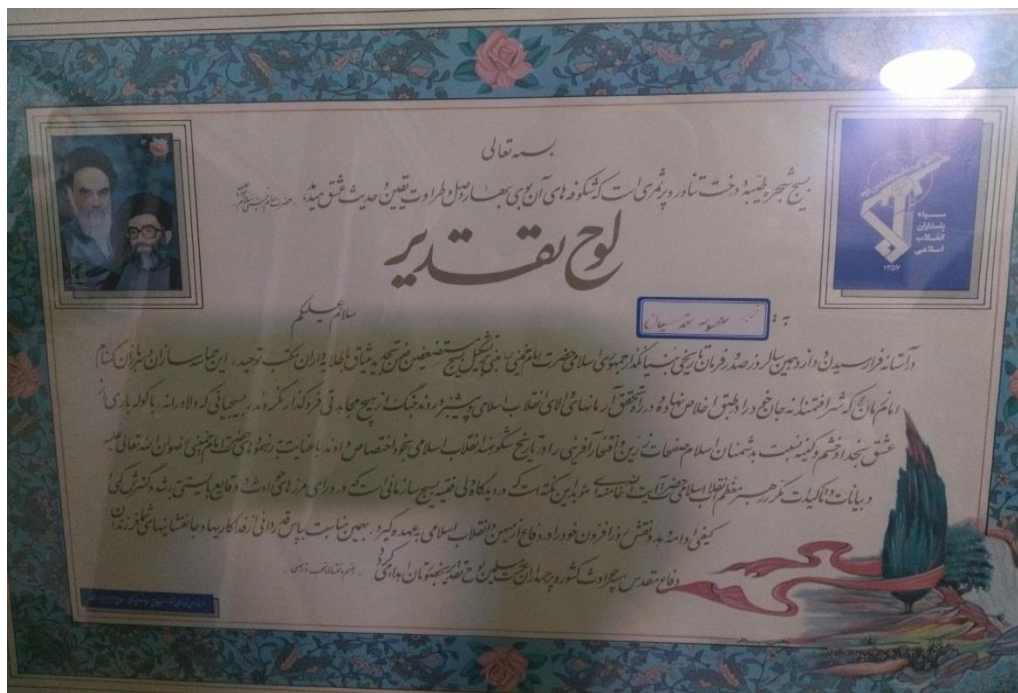 بسمه تعالی
بسیج شجره طیبه و درخت تناور و پرثمری است که شکوفه های آن بوی بهار وصل و طراوت یقین و حدیث عشق میدهد
سپاه
پاسداران
انقلاب
اسلامی
۱۳۵۷
لوح تقدیر
به :
سلام علیکم
در آستانه فرارسیدن دوازدهمین سالروز صدور فرمان تاریخی بنیانگذار جمهوری اسلامی حضرت امام خمینی مبنی بر تشکیل بسیج مستضعفین ضمن تجدید میثاق با طلایه داران مکتب توحید، این حماسه سازان و دلیران گمنام
امام زمان که شرافتمندانه جان خود در طبق اخلاص نهاده و در راه تحقق آرمانهای والای انقلاب اسلامی و پیشبرد روند جنگ از هیچ مجاهدتی فروگذار نکردند، بسیجیانی که دلاورانه، با کوله باری از
عشق بخدا و خشم و کینه نسبت بدشمنان اسلام صفحات زرین و افتخارآفرینی را در تاریخ شکوهمند انقلاب اسلامی بخود اختصاص دادند با عنایت رهنمودهای حضرت امام خمینی رضوان الله تعالی علیه
و بیانات و تاکیدات مکرر رهبر معظم انقلاب اسلامی حضرت آیت الله خامنه ای بدین نکته است که در دیدگاه ولی فقیه بسیج سازمانی است که در ورای مرزهای حوادث و وقایع بایستی رشد و گسترش کمی و
کیفی ادامه یابد و نقش روزافزون خود را در دفاع از میهن و انقلاب اسلامی به عهده گیرد. بهمین مناسبت بپاس قدردانی از فداکاریها و جانفشانیهای شما فرزندان
دفاع مقدس حوادث کشور و پرچمداران عزت مسلمین لوح تقدیر بحضورتان اهداء می گردد